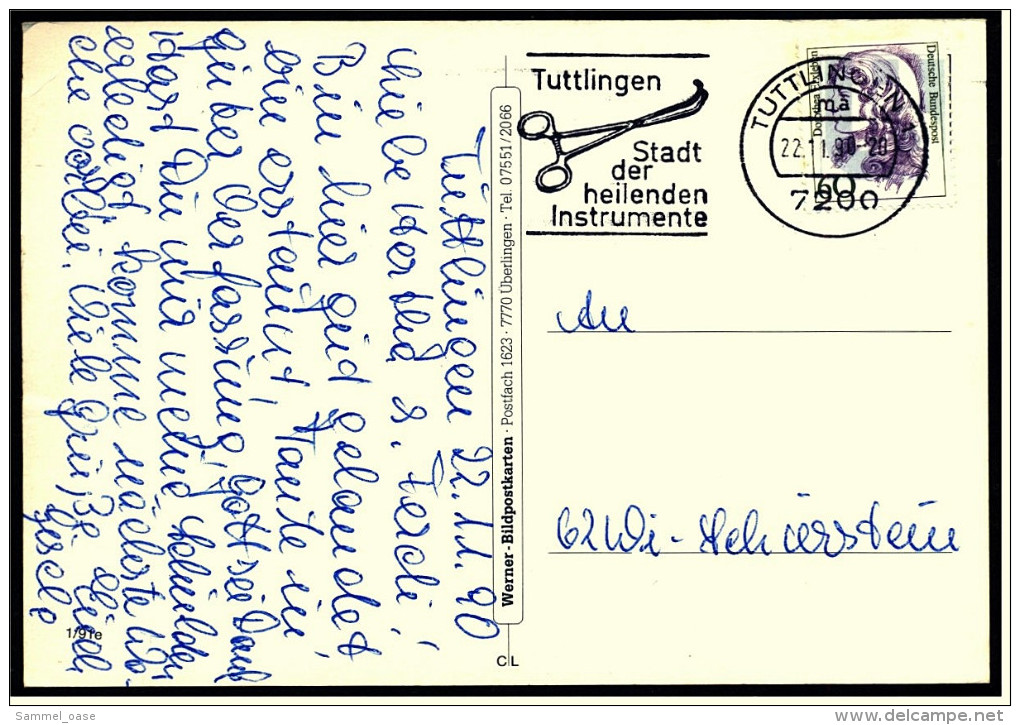 Tuttlingen 22.11.90
Liebe Hertha & Ferdi!
Bin hier gut gelandet
bin erstaunt Tante in
guter Verfassung, Gott sei Dank
Hast Du mir
erledigt komme nächste Wo-
che vorbei. Viele Grüße
Gisela
1/91e
Werner-Bildpostkarten · Postfach 1623 · 7770 Überlingen · Tel. 07551/2066
CL
Tuttlingen
Stadt
der
heilenden
Instrumente
TUTTLINGEN 1
ma
22.11.90-20
7200
Deutsche Bundespost
Dorothea Erxleben
60
An
62 Wi-Schierstein
Sammel_oase